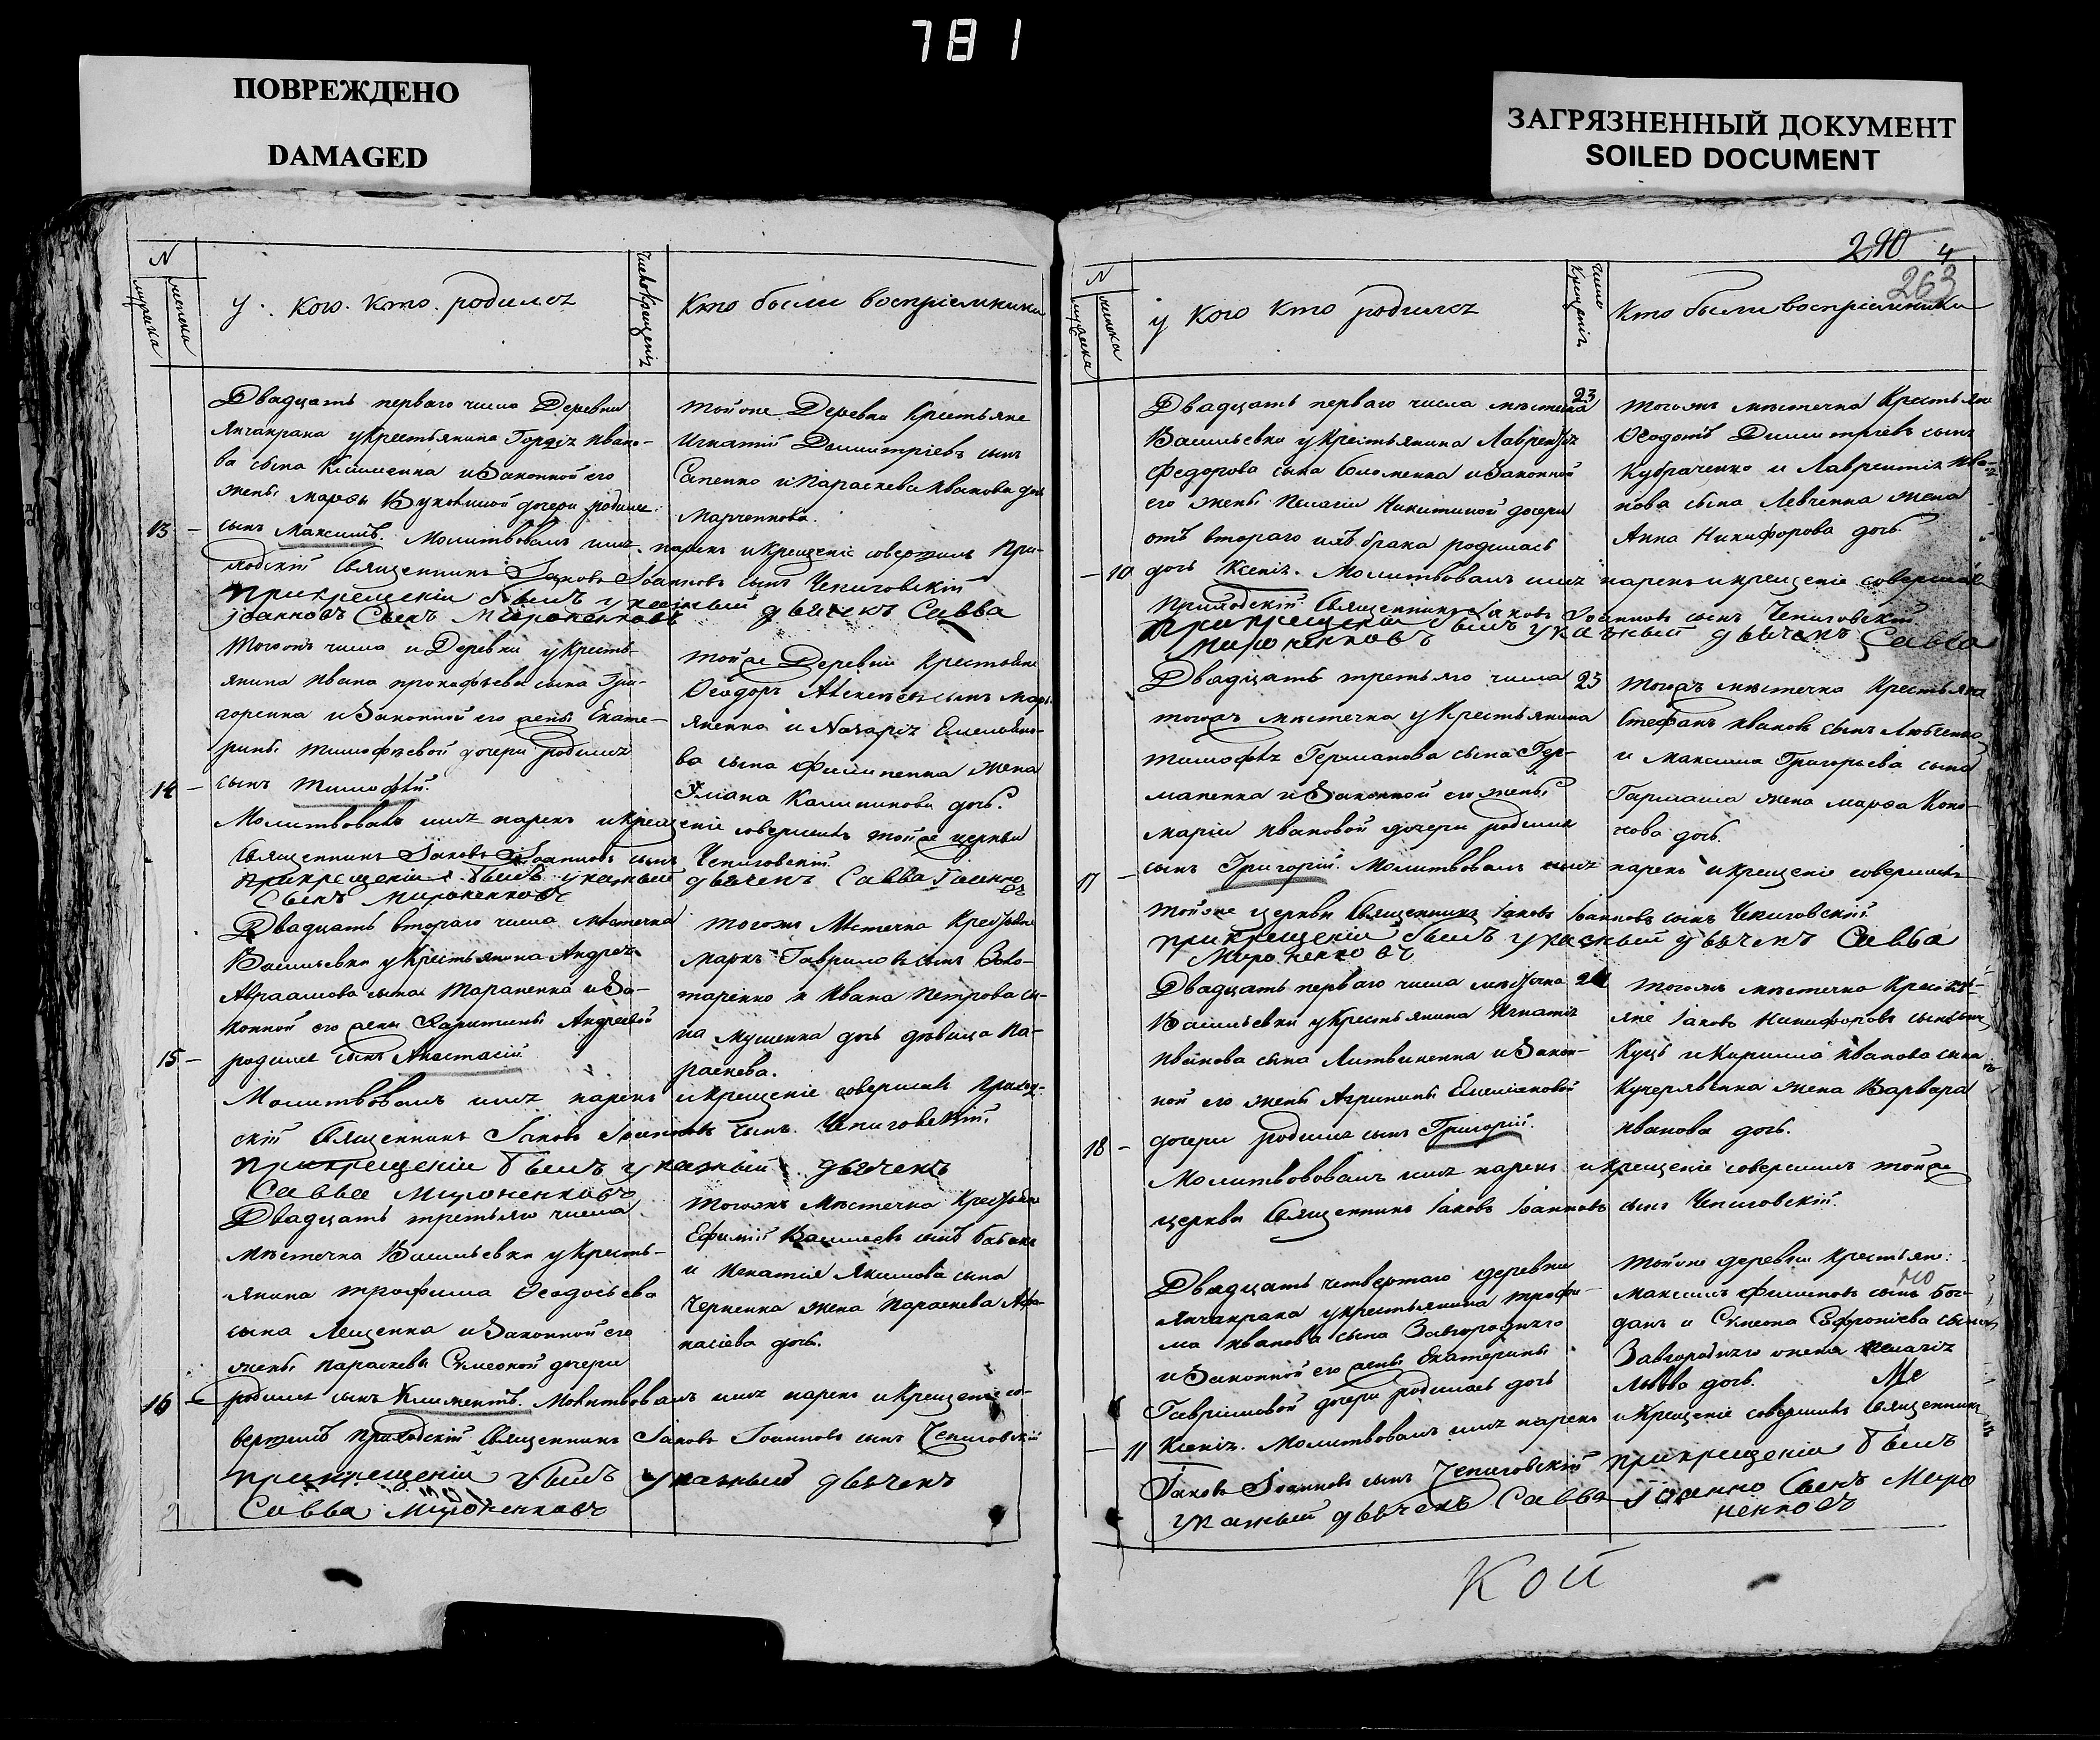 781
ПОВРЕЖДЕНО
DAMAGED
ЗАГРЯЗНЕННЫЙ ДОКУМЕНТ
SOILED DOCUMENT
N
мужеска
женска
у кого кто родился
число крещенія
Кто были воспріемники
Двадцать перваго числа Деревни
Янчакрака у Крестьянина Гордѣя Ивано-
ва сына Клименка и Законной его
жены Марѳы Вуколиной дочери родился
13 -
сынъ Максимъ. Молитвовалъ имя нарекъ и крещеніе совершилъ При-
ходскій Священникъ Іаковъ Іоанновъ сынъ Чепиговскій
При крещеніи былъ указный дьячекъ Савва
Іоанновъ Сынъ Мироненковъ
тойже Деревни Крестьяне
Игнатій Димитріевъ сынъ
Сапенко и Параскева Иванова дочь
Марченкова.
Тогожъ числа и Деревни у Кресть-
янина Ивана Прокофьева сына Гри-
горенка и Законной его жены Екате-
рины Тимофѣевой дочери родился
14 -
сынъ Тимофей.
Молитвовалъ имя нарекъ и крещеніе совершилъ тойже церкви
Священникъ Іаковъ Іоанновъ сынъ Чепиговскій
При крещеніи былъ указный дьячекъ Савва
Сынъ Мироненковъ
тойже Деревни Крестьяне
Ѳеодоръ Алексѣевъ сынъ
и Назарія Емельяно-
ва сына Филипенка жена
Уліана Калиникова дочь.
Двадцать втораго числа Мѣстечка
Васильевки у Крестьянина Андрея
Авраамова сына Тараненка и За-
конной его жены Харитины Андреевой
15 -
родился сынъ Анастасій
Молитвовалъ имя нарекъ и крещеніе совершилъ Приход-
скій Священникъ Іаковъ Іоанновъ сынъ Чепиговскій.
При крещеніи былъ указный дьячекъ
Савва Мироненковъ
тогожъ Мѣстечка Крестьяне
Маркъ Гавриловъ сынъ Золо-
таренко и Ивана Петрова сы-
на Мушенка дочь дѣвица Па-
раскева.
Двадцать третьяго числа
мѣстечка Васильевки у Кресть-
янина Трофима Ѳеодосьева
сына Лещенка и Законной его
жены Параскевы Симеоной дочери
16 -
родился сынъ Климентъ. Молитвовалъ имя нарекъ и Крещеніе со-
вершилъ Приходскій Священникъ Іаковъ Іоанновъ сынъ Чепиговскій
При крещеніи былъ указный дьячекъ
Савва Мироненковъ
тогожъ Мѣстечка Крестьяне
Ефимій Васильевъ сынъ Бабакъ
и Игнатія Якимова сына
Черненка жена Параскева Афа-
насіева дочь.
290
4
263
N
мужеска
женска
у кого кто родился
число крещенія
Кто были воспріемники
Двадцать перваго числа мѣстечка
23
Васильевки у Крестьянина Лаврентія
Федорова сына Соломенка и Законной
его жены Пелагіи Никитиной дочери
отъ втораго ихъ брака родилась
- 10
дочь Ксенія. Молитвовалъ имя нарекъ и крещеніе совершилъ
Приходскій Священникъ Іаковъ Іоанновъ сынъ Чепиговскій
При крещеніи былъ указный дьячекъ Савва
Мироненковъ
тогожъ мѣстечка Крестьяне
Ѳеодотъ Димитріевъ сынъ
Кубраченко и Лаврентія Ива-
нова сына Левченка жена
Анна Никифорова дочь.
Двадцать третьяго числа
23
тогожъ мѣстечка у Крестьянина
Тимофея Германова сына Гер-
маненка и Законной его жены
Маріи Ивановой дочери родился
17 -
сынъ Григорій. Молитвовалъ имя нарекъ и крещеніе совершилъ
тойже церкви Священникъ Іаковъ Іоанновъ сынъ Чепиговскій
При крещеніи былъ указный дьячекъ Савва
Мироненковъ
тогожъ мѣстечка Крестьяне
Стефанъ Ивановъ сынъ Любченко
и Максима Григорьева сына
Гармаша жена Марѳа Коно-
нова дочь.
Двадцать перваго числа мѣстечка
Васильевки у Крестьянина Игнатія
Иванова сына Литвиненка и Закон-
ной его жены Агрипины Емеліановой
18 -
дочери родился сынъ Григорій.
Молитвовалъ имя нарекъ и крещеніе совершилъ тойже
церкви Священникъ Іаковъ Іоанновъ сынъ Чепиговскій.
тогожъ мѣстечка Кресть-
яне Іаковъ Никифоровъ сынъ
Куцъ и Кирилла Иванова сына
Кучерявенка жена Варвара
Иванова дочь.
Двадцать четвертаго деревни
Янчакрака у крестьянина Трофи-
ма Иванова сына Завгороднего
и Законной его жены Екатерины
Гавриловой дочери родилась дочь
- 11
Ксенія. Молитвовалъ имя нарекъ и Крещеніе совершилъ Священникъ
Іаковъ Іоанновъ сынъ Чепиговскій При крещеніи былъ
указный дьячекъ Савва Іоанновъ Сынъ Миро
ненковъ
тойже деревни крестьяне:
Максимъ Филиповъ сынъ Бог-
данъ и Симеона Софроніева сына
Завгороднего жена Пелагія
Львова дочь.
Кой